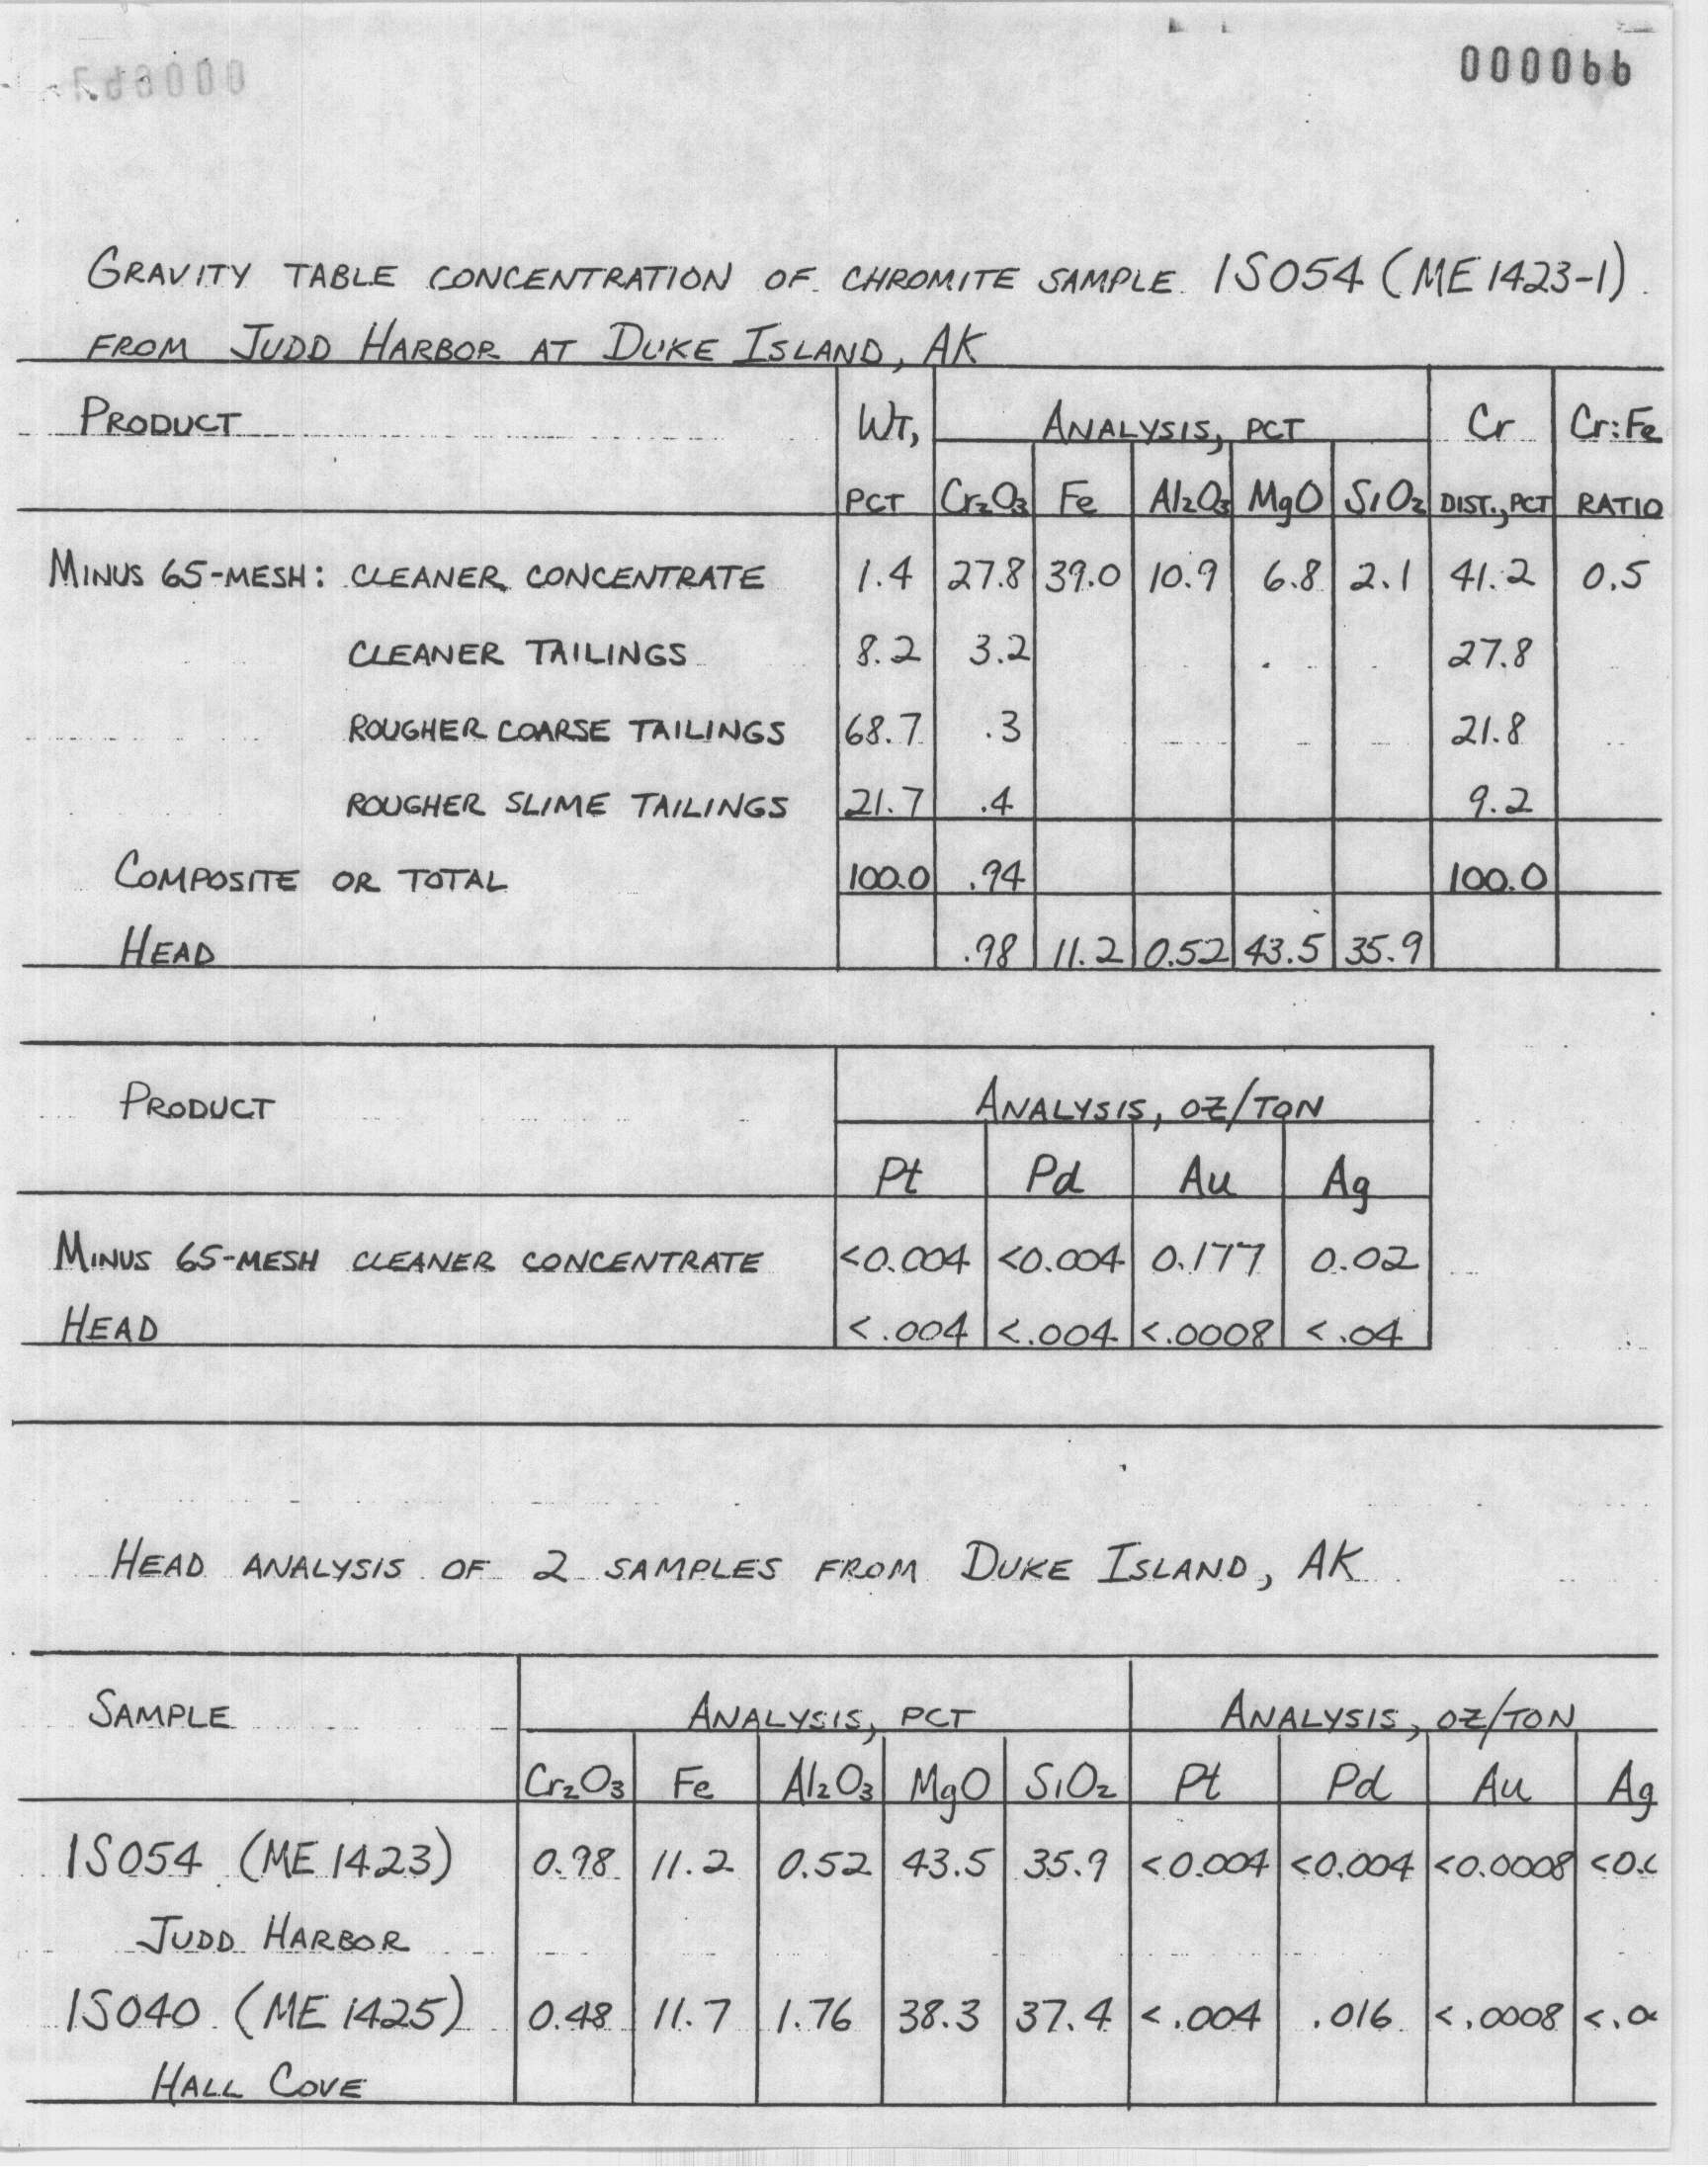 000066
GRAVITY TABLE CONCENTRATION OF CHROMITE SAMPLE 1S054 (ME 1423-1)
FROM JUDD HARBOR AT DUKE ISLAND, AK
PRODUCT WT, ANALYSIS, PCT Cr Cr:Fe
PCT Cr₂O₃ Fe Al₂O₃ MgO SiO₂ DIST., PCT RATIO
MINUS 65-MESH: CLEANER CONCENTRATE 1.4 27.8 39.0 10.9 6.8 2.1 41.2 0.5
CLEANER TAILINGS 8.2 3.2 27.8
ROUGHER COARSE TAILINGS 68.7 .3 21.8
ROUGHER SLIME TAILINGS 21.7 .4 9.2
COMPOSITE OR TOTAL 100.0 .94 100.0
HEAD .98 11.2 0.52 43.5 35.9
PRODUCT ANALYSIS, OZ/TON
Pt Pd Au Ag
MINUS 65-MESH CLEANER CONCENTRATE <0.004 <0.004 0.177 0.02
HEAD <.004 <.004 <.0008 <.04
HEAD ANALYSIS OF 2 SAMPLES FROM DUKE ISLAND, AK
SAMPLE ANALYSIS, PCT ANALYSIS, OZ/TON
Cr₂O₃ Fe Al₂O₃ MgO SiO₂ Pt Pd Au Ag
1S054 (ME 1423) 0.98 11.2 0.52 43.5 35.9 <0.004 <0.004 <0.0008
JUDD HARBOR
1S040 (ME 1425) 0.48 11.7 1.76 38.3 37.4 <.004 .016 <.0008
HALL COVE